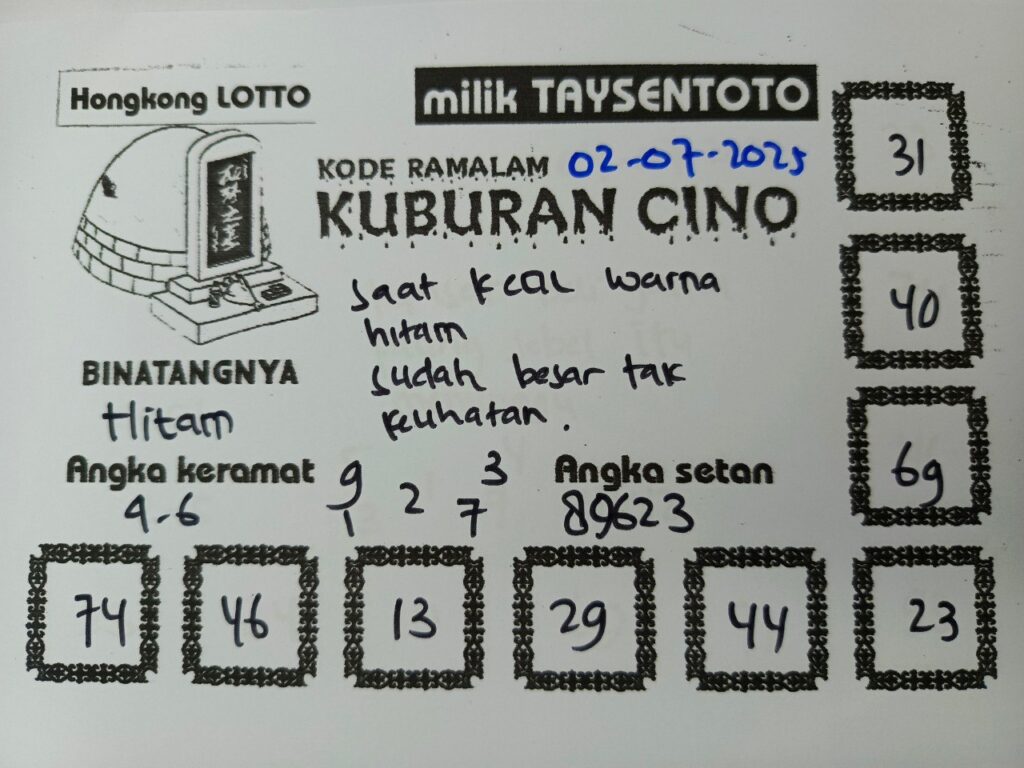 Hongkong LOTTO
milik TAYSENTOTO
KODE RAMALAM 02-07-2025
KUBURAN CINO
saat kcal warna
hitam
sudah besar tak
keuhatan.
BINATANGNYA
Hitam
Angka keramat
9-6
9 3
2
1 7
Angka setan
89623
31
40
69
74 46 13 29 44 23